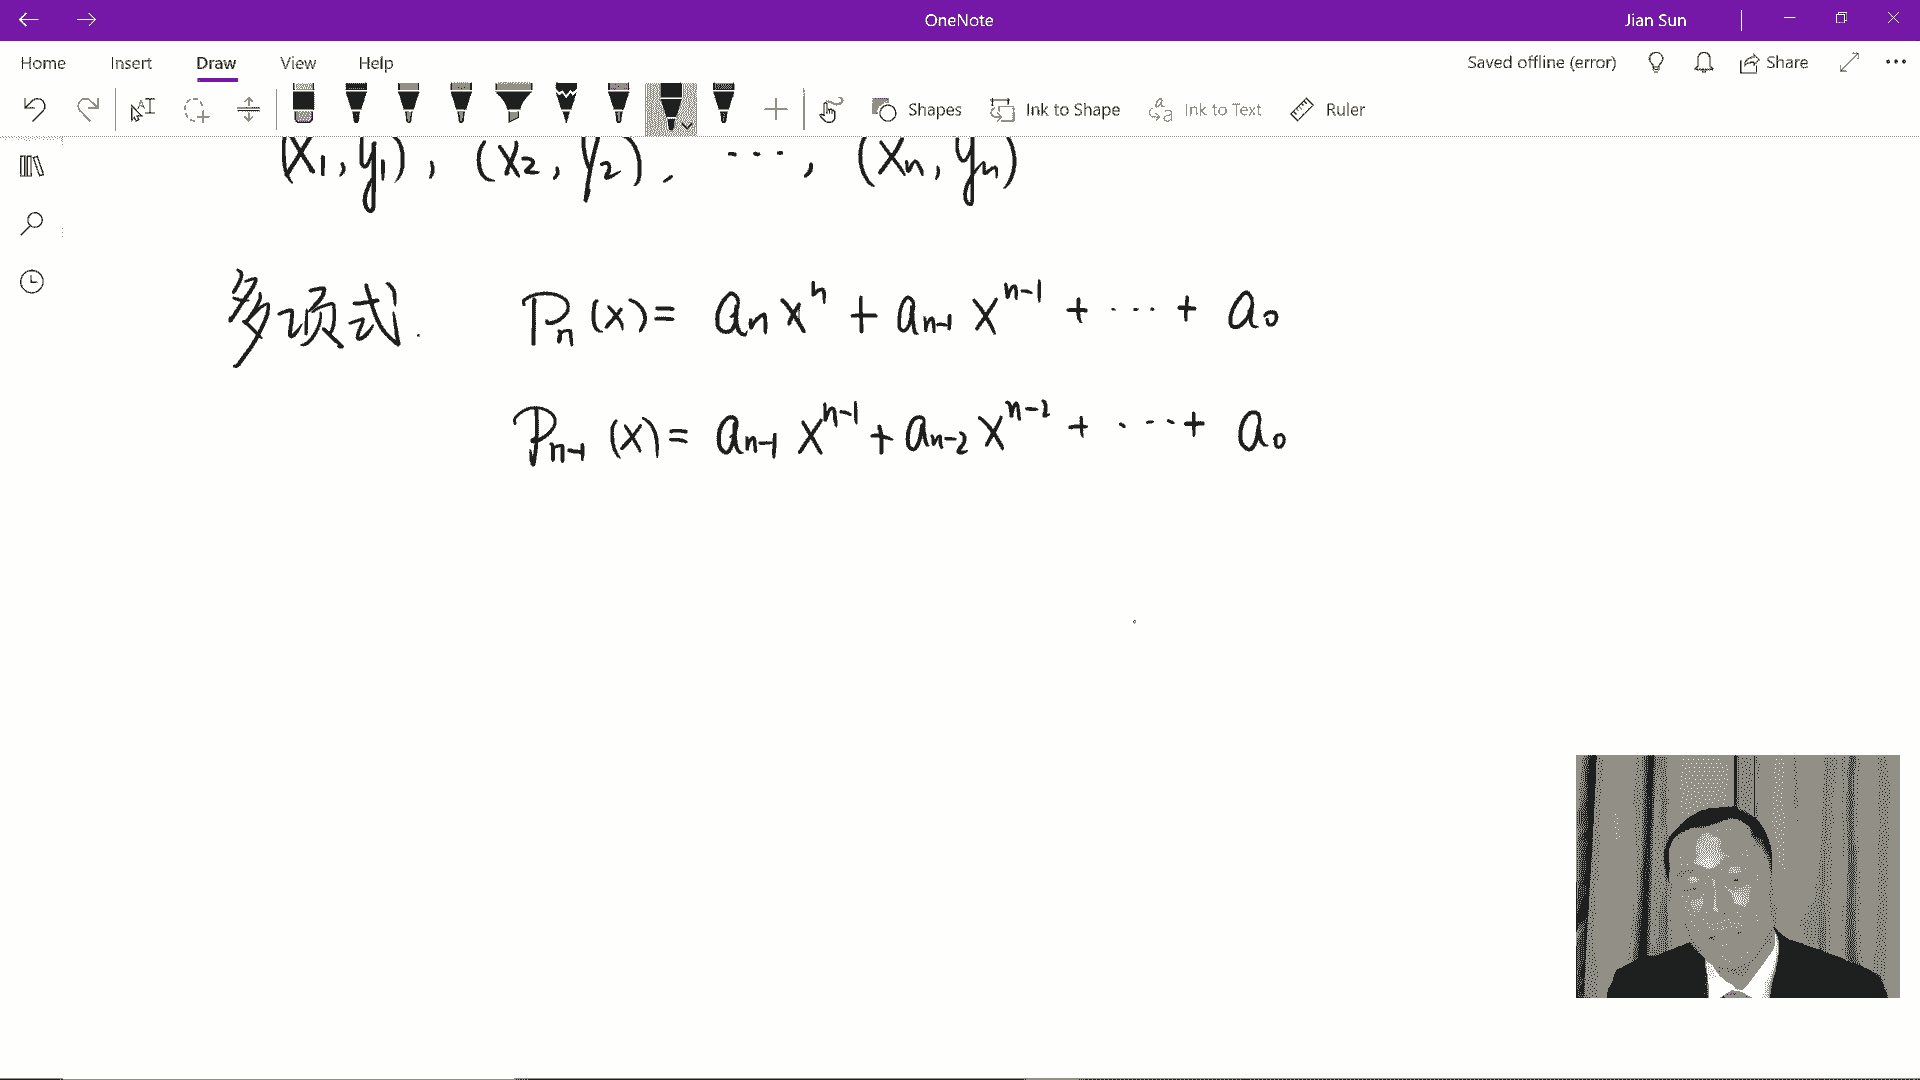 OneNote
Jian Sun
Home Insert Draw View Help
Saved offline (error) Share
Shapes Ink to Shape Ink to Text Ruler
(x₁, y₁), (x₂, y₂), ⋯, (xₙ, yₙ)
多项式. Pₙ(x) = aₙxⁿ + aₙ₋₁xⁿ⁻¹ + ⋯ + a₀
Pₙ₋₁(x) = aₙ₋₁xⁿ⁻¹ + aₙ₋₂xⁿ⁻² + ⋯ + a₀